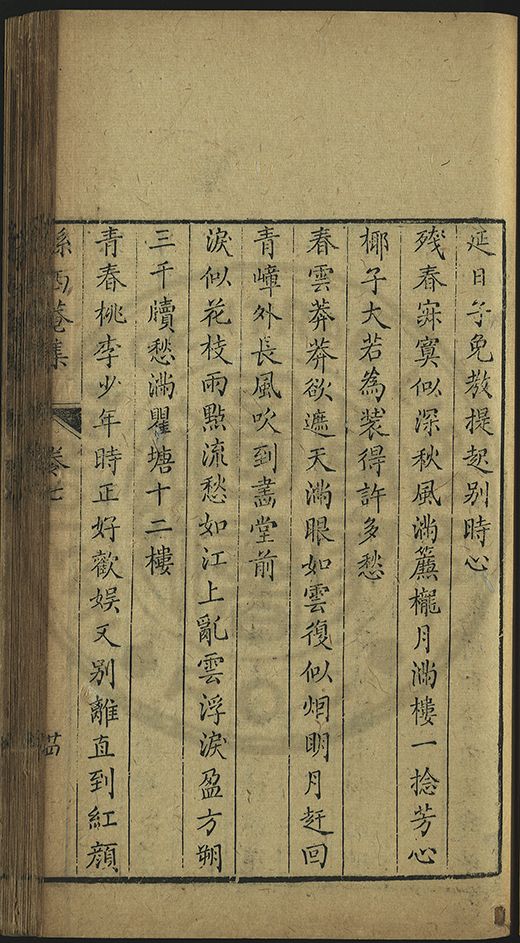 延日子免教提起别時心
殘春寂寞似深秋風滿簾櫳月滿樓一捻芳心
椰子大若為裝得許多愁
春雲莽莽欲遮天滿眼如雲復似烟明月赶回
青嶂外長風吹到畵堂前
淚似花枝雨點流愁如江上亂雲浮淚盈方朔
三千牘愁滿瞿塘十二樓
青春桃李少年時正好歡娱又别離直到紅顔
孫西菴集
卷七